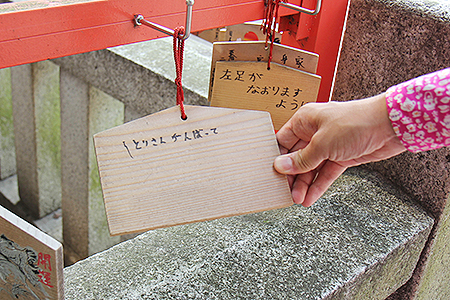 左足が
なおります
ように
とりさん がんばって
開運